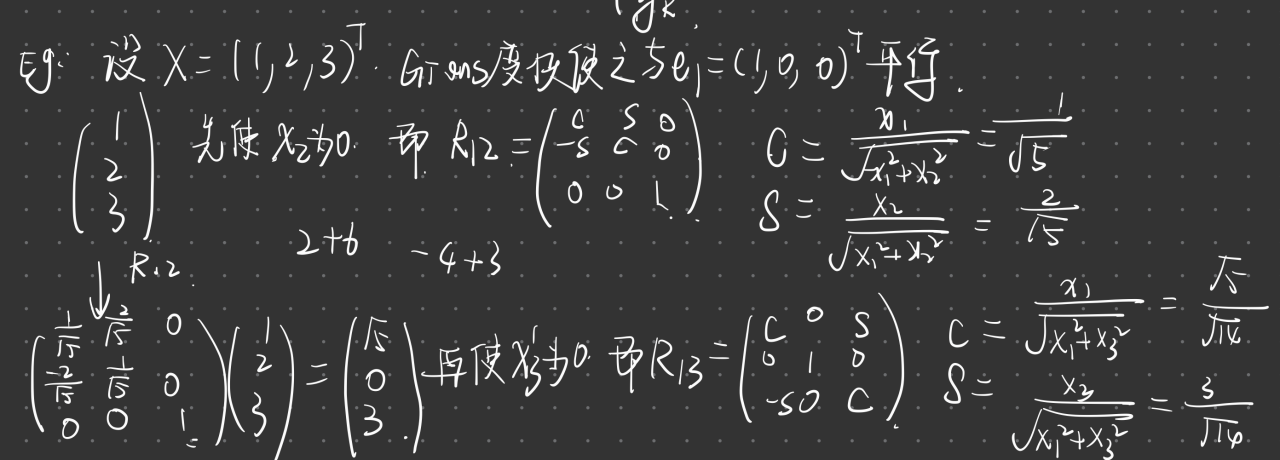 Eg: 设 X=(1,2,3)^T. Givens变换使之与e₁=(1,0,0)^T平行.
(1 2 3) 先使 x₂为0. 即 R₁₂=(c s 0 -s c 0 0 0 1). C = x₁/√(x₁²+x₂²) = 1/√5
S = x₂/√(x₁²+x₂²) = 2/√5
2+6 -4+3
↓ R₁₂
(1/√5 2/√5 0 -2/√5 1/√5 0 0 0 1) (1 2 3) = (√5 0 3) 再使x₃'为0. 即R₁₃=(c 0 s 0 1 0 -s 0 c). C = x₁/√(x₁²+x₃²) = √5/√14
S = x₃/√(x₁²+x₃²) = 3/√14